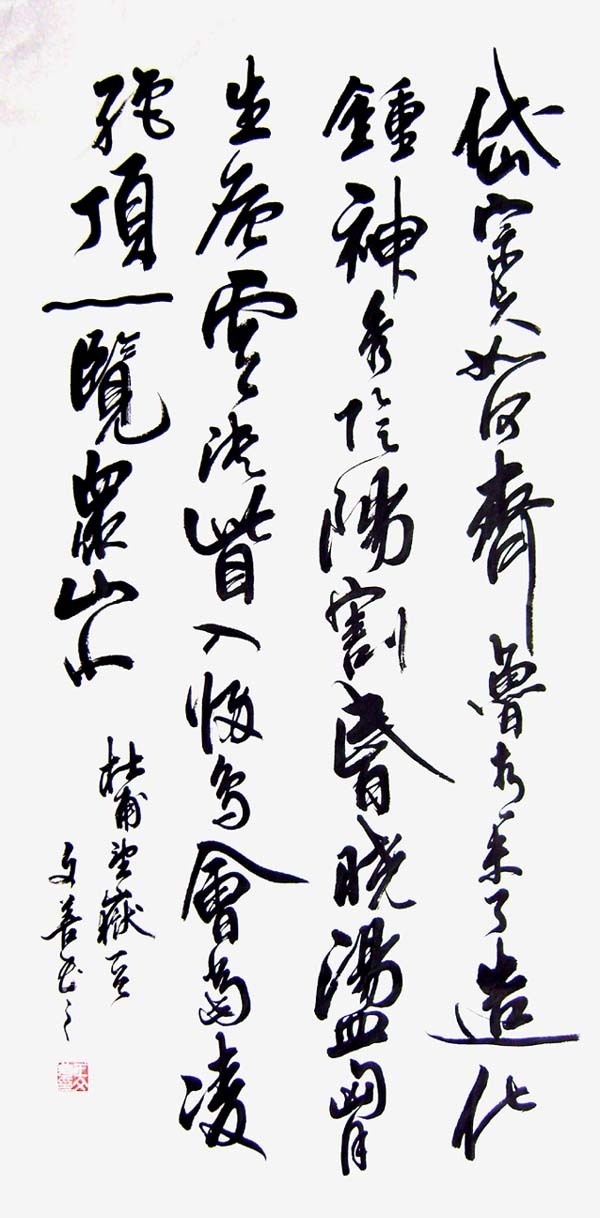 岱宗夫如何齊魯青未了造化
鍾神秀陰陽割昏曉盪胸
生層雲決眥入歸鳥會當凌
絕頂一覽眾山小
杜甫望嶽
文善書之